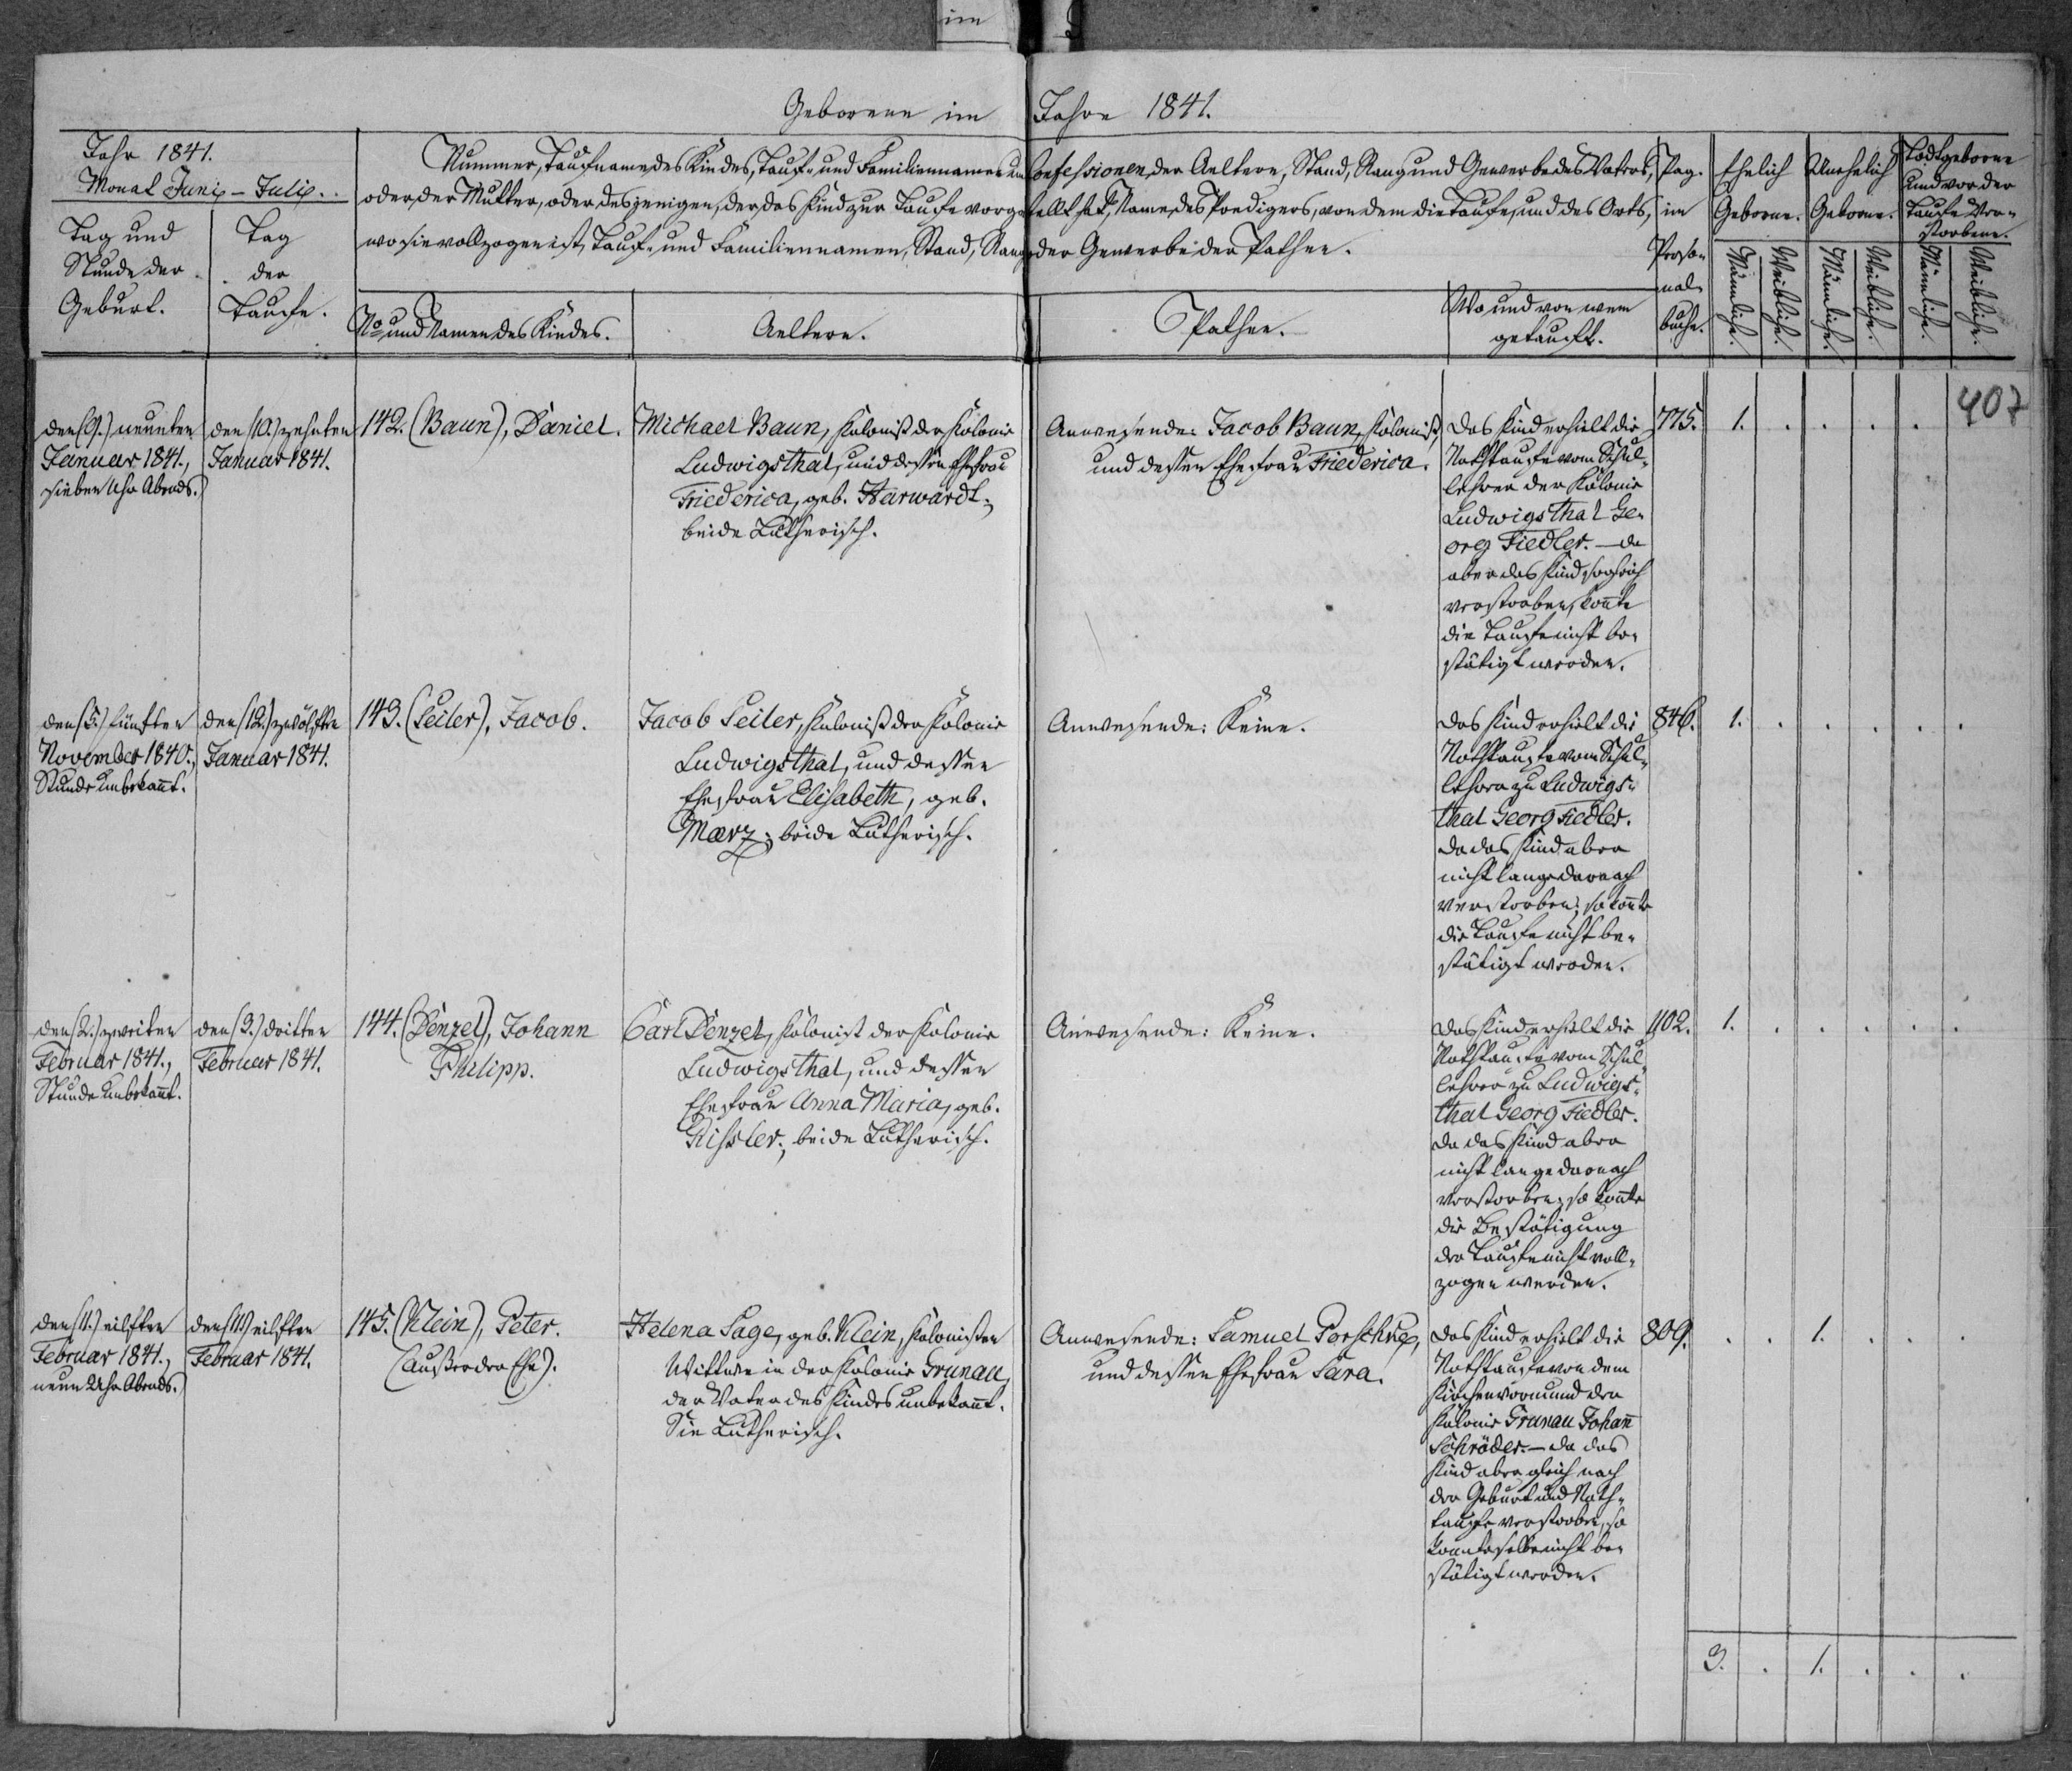 im
Geborene im Jahre 1841.
Jahr 1841.
Monat Junij - Julij.
Tag und
Stunde der
Geburt.
Tag
der
Taufe.
Nummer, Taufname des Kindes, Tauf- und Familiennamen und Confessionen der Aeltern, Stand, Rang und Gewerbe des Vaters,
oder der Mutter, oder desjenigen, der das Kind zur Taufe vorgestellt hat, Name des Predigers, von dem die Taufe, und des Orts,
wo sie vollzogen ist, Tauf- und Familiennamen, Stand, Rang oder Gewerbe der Pathen.
No und Namen des Kindes.
Aeltern.
Pathen.
Wo und von wem
getauft.
Pag.
im
Perso-
nal-
buche.
Ehelich
Geborne.
Unehelich
Geborne.
Todtgeborne
und vor der
Taufe Ver-
storbene.
Männliche.
Weibliche.
Männliche.
Weibliche.
Männliche.
Weibliche.
407
den (9.) neunten
Januar 1841.,
sieben Uhr Abends.
den (10.) zehnten
Januar 1841.
142. (Baun), Daniel.
Michael Baun, Kolonist der Kolonie
Ludwigsthal, und dessen Ehefrau
Friederica, geb. Harwardt;
beide Lutherisch.
Anwesende: Jacob Baun, Kolonist,
und dessen Ehefrau Friederica.
Das Kind erhielt die
Nothtaufe vom Schul-
lehrer der Kolonie
Ludwigsthal Ge-
org Fiedler. — Da
aber das Kind sogleich
verstorben, konnte
die Taufe nicht be-
stätigt werden.
775. 1. . . . .
den (5.) fünften
November 1840.,
Stunde unbekannt.
den (12.) zwölften
Januar 1841.
143. (Seiler), Jacob.
Jacob Seiler, Kolonist der Kolonie
Ludwigsthal, und dessen
Ehefrau Elisabeth, geb.
Maerz; beide Lutherisch.
Anwesende: Keine.
Das Kind erhielt die
Nothtaufe vom Schul-
lehrer zu Ludwigs-
thal Georg Fiedler.
Da das Kind aber
nicht lange darnach
verstorben; so konnte
die Taufe nicht be-
stätigt werden.
846. 1. . . . . .
den (2.) zweiten
Februar 1841.,
Stunde unbekannt.
den (3.) dritten
Februar 1841.
144. (Denzel), Johann
Philipp.
Carl Denzel, Kolonist der Kolonie
Ludwigsthal, und dessen
Ehefrau Anna Maria, geb.
Rissler; beide Lutherisch.
Anwesende: Keine.
Das Kind erhielt die
Nothtaufe vom Schul-
lehrer zu Ludwigs-
thal Georg Fiedler.
Da das Kind aber
nicht lange darnach
verstorben; so konnte
die Bestätigung
der Taufe nicht voll-
zogen werden.
1. . . . . .
den (11.) eilften
Februar 1841.,
neun Uhr Abends.
den (11.) eilften
Februar 1841.
145. (Klein), Peter.
(außer der Ehe).
Helena Sage, geb. Klein, Kolonisten
Wittwe in der Kolonie Grunau,
der Vater des Kindes unbekannt.
Sie Lutherisch.
Anwesende: Samuel Porschke,
und dessen Ehefrau Sara.
Das Kind erhielt die
Nothtaufe von dem
Kirchenvormund der
Kolonie Grunau Johann
Schröder. — Da das
Kind aber gleich nach
der Geburt und Noth-
taufe verstorben, so
konnte selbe nicht be-
stätigt werden.
809. . . 1. . . .
3. . 1. . . .